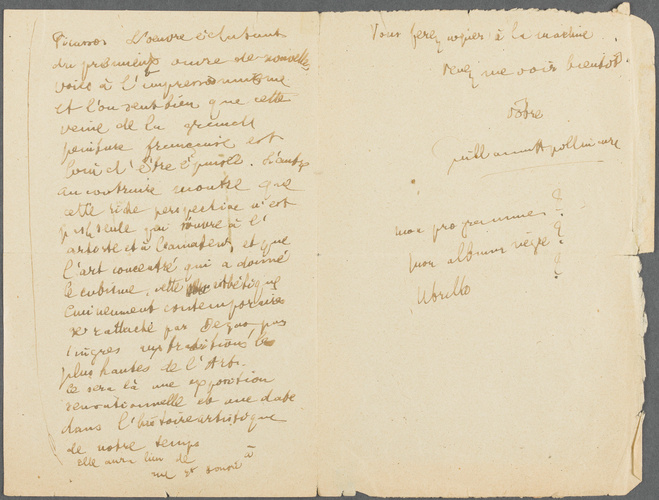 Picasso. L'oeuvre éclatant
du printemps ouvre de nouvelles
voile à l'impressionnisme
et l'on sent bien que cette
veine de la grande
peinture française est
loin d'être épuisée.
au contraire montre que
cette riche perspective n'est
pas seule qui s'ouvre à l'
artiste et à l'amateur, et que
l'art concentré qui a donné
le cubisme, cette esthétique
éminemment contemporaine
se rattache par Degas, par
Ingres aux traditions les
plus hautes de l'Art.
Ce sera là une exposition
sensationnelle et une date
dans l'histoire artistique
de notre temps
elle aura lieu de à
rue St honoré
Vous ferez copier à la machine
Venez me voir bientôt.
Votre
Guillaume Apollinaire
mon programme ?
mon album nègre ?
Utrillo ?